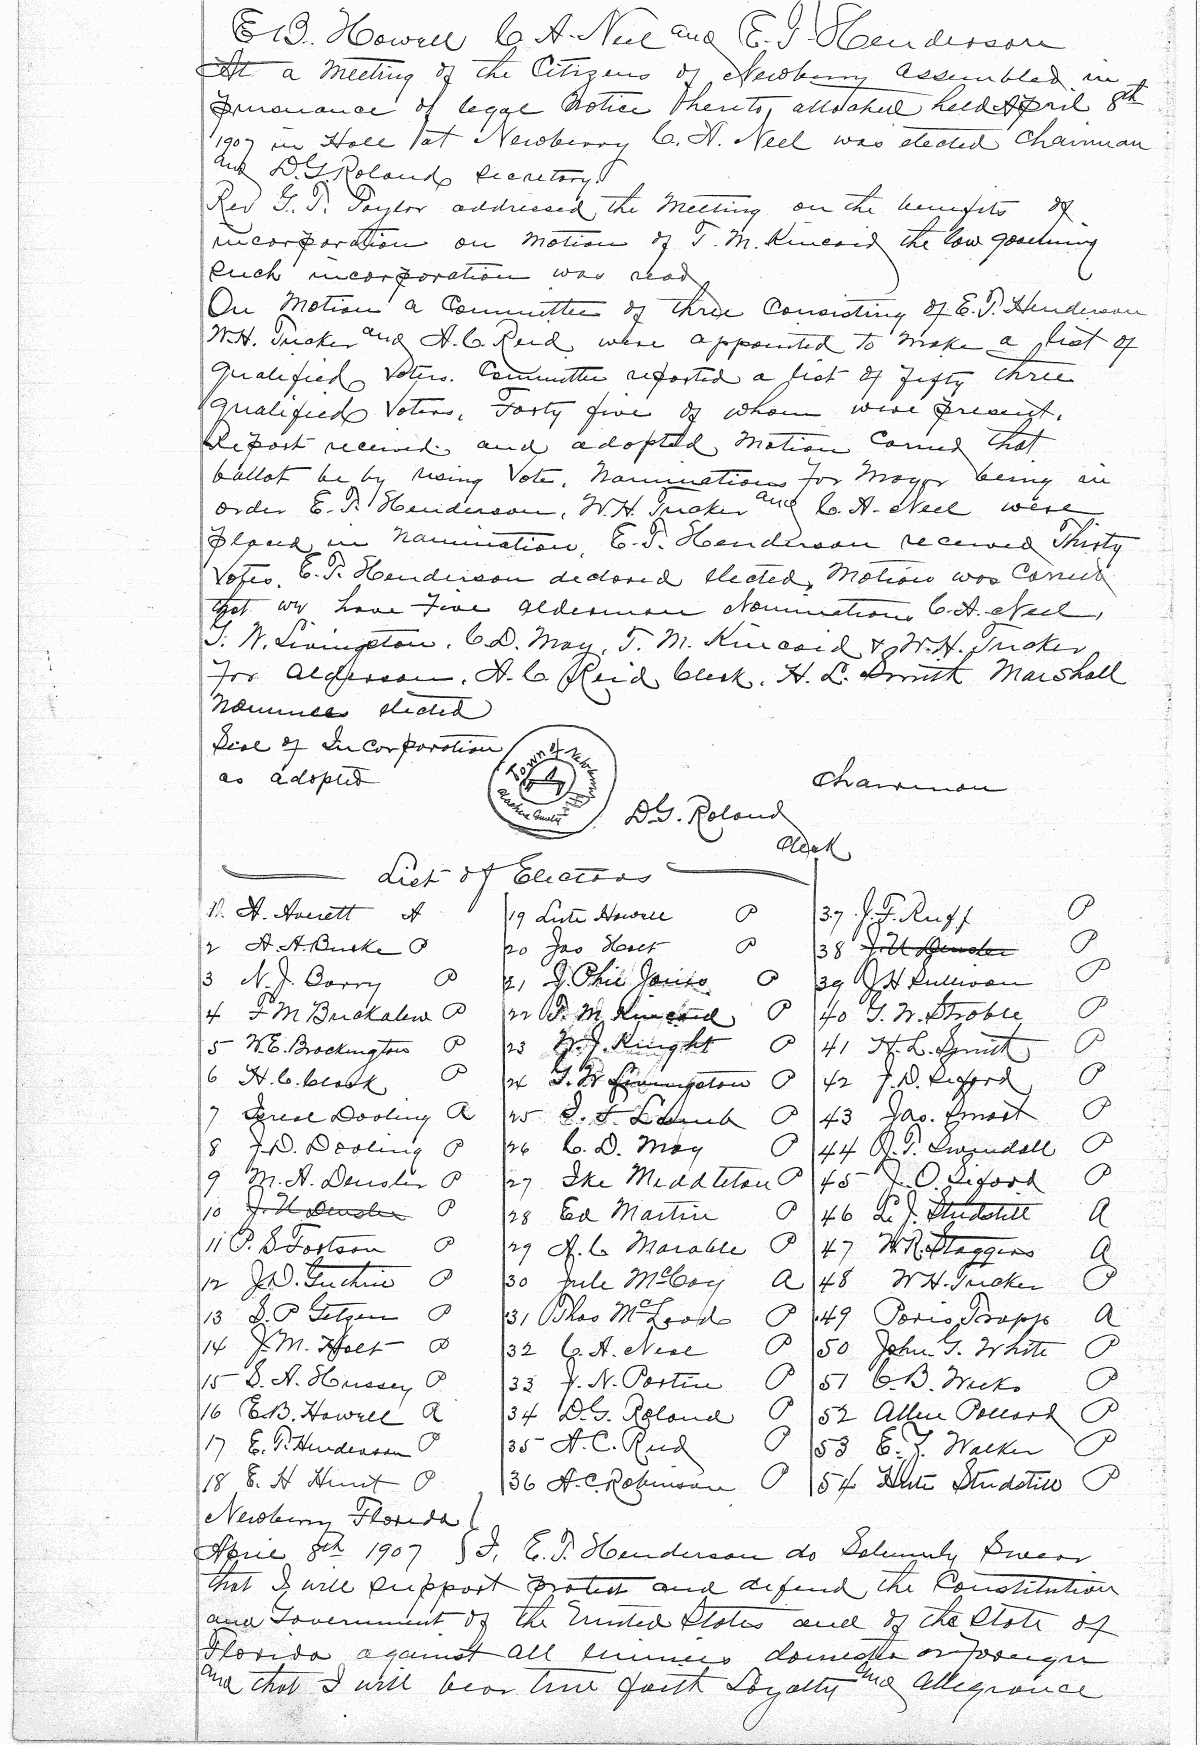 E.B. Howell C. A. Neel and E. T. Henderson
At a Meeting of the Citizens of Newberry assembled in
pursuance of legal Notice thereto attached held April 8th
1907 in Hall at Newberry C. A. Neel was elected Chairman
and D.G. Roland Secretary.
Rev G. T. Taylor addressed the Meeting on the benefits of
incorporation on Motion of T. M. Kincaid the law governing
such incorporation was read
On Motion a Committee of three Consisting of E. T. Henderson
W.H. Tucker and A. C. Reid were appointed to make a list of
qualified Voters. Committee reported a list of fifty three
qualified Voters, Forty five of whom were present.
Report received and adopted Motion Carried that
ballot be by rising Vote. Nominations for Mayor being in
order E. T. Henderson, W.H. Tucker and C. A. Neel were
placed in Nomination, E. T. Henderson received Thirty
Votes. E. T. Henderson declared elected, Motion was Carried
that we have Five alderman Nominations C. A. Neel,
G. W. Livingston, C. D. May, T. M. Kincaid & W. H. Tucker
For Alderman, A. C. Reid Clerk, H. L. Smith Marshall
Nominees elected
Seal of Incorporation
as adopted
Town of Newberry
Alachua County
Chairman
D.G. Roland
Clerk
List of Electors
1 A. Averett A
2 A. A. Burke P
3 N. J. Barry P
4 F M Buckalew P
5 W. E. Brockington P
6 H. C. Clark P
7 Dooling A
8 J. D. Dooling P
9 M. A. Densler P
10 J. U Densler P
11 P. S Fortson P
12 J. D. Guthrie P
13 S. P Getzen P
14 J. M. Holt P
15 S. A. Hussey P
16 E.B. Howell A
17 E. T. Henderson P
18 E. H Hunt P
19 Howell P
20 Jas Holt P
21 J. Phil P
22 T. M. Kincaid P
23 W. J. Knight P
24 G. W Livingston P
25 Lamb P
26 C. D. May P
27 Ike Middleton P
28 Ed Martin P
29 A. C Marable P
30 Jule McCoy A
31 Thos McLeod P
32 C. A. Neel P
33 J. N. Portin P
34 D. G. Roland P
35 A. C. Reid P
36 A. C. Robinson P
37 J. F. Ruff P
38 J. U Densler P
39 J H Sullivan P
40 G. W. Stroble P
41 H. L. Smith P
42 J. D. Seford P
43 Jas. Smart P
44 Swindall P
45 J. O. Seford P
46 L. J. Studstill A
47 W. R. Staggers A
48 W H. Tucker P
49 Paris Trapp A
50 John G. White P
51 C. B. Weeks P
52 Allen Pollard P
53 E. Z. Walker P
54 Studstill P
Newberry Florida
April 8th 1907 I, E. T. Henderson do Solemnly Swear
that I will support protect and defend the Constitution
and Government of the United States and of the State of
Florida against all enimies domestic or foreign
and that I will bear true faith Loyalty and Allegiance